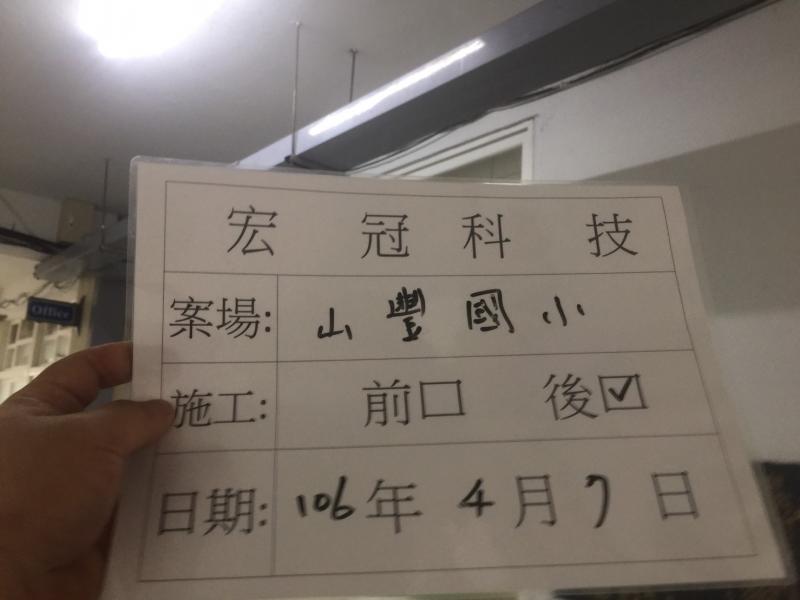 Office
宏冠科技
案場: 山豐國小
施工: 前☐ 後☑
日期: 106年4月7日